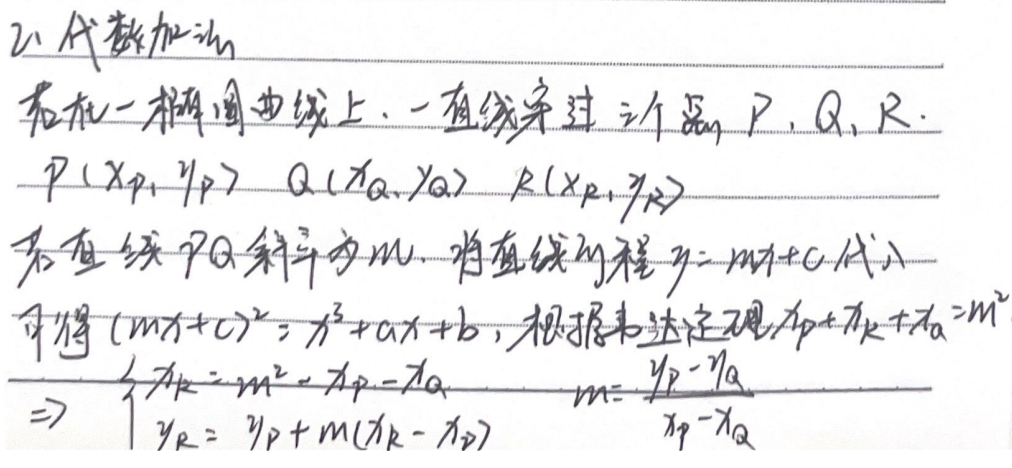 2、代数加法
若在一椭圆曲线上，一直线穿过三个点 P、Q、R.
P(x_P, y_P) Q(x_Q, y_Q) R(x_R, y_R)
若直线PQ斜率为m，将直线方程 y=mx+c 代入
可得 (mx+c)²=x³+ax+b，根据韦达定理 x_P+x_R+x_Q=m²
{ x_R=m²-x_P-x_Q m=(y_P-y_Q)/(x_P-x_Q)
⇒ y_R=y_P+m(x_R-x_P)